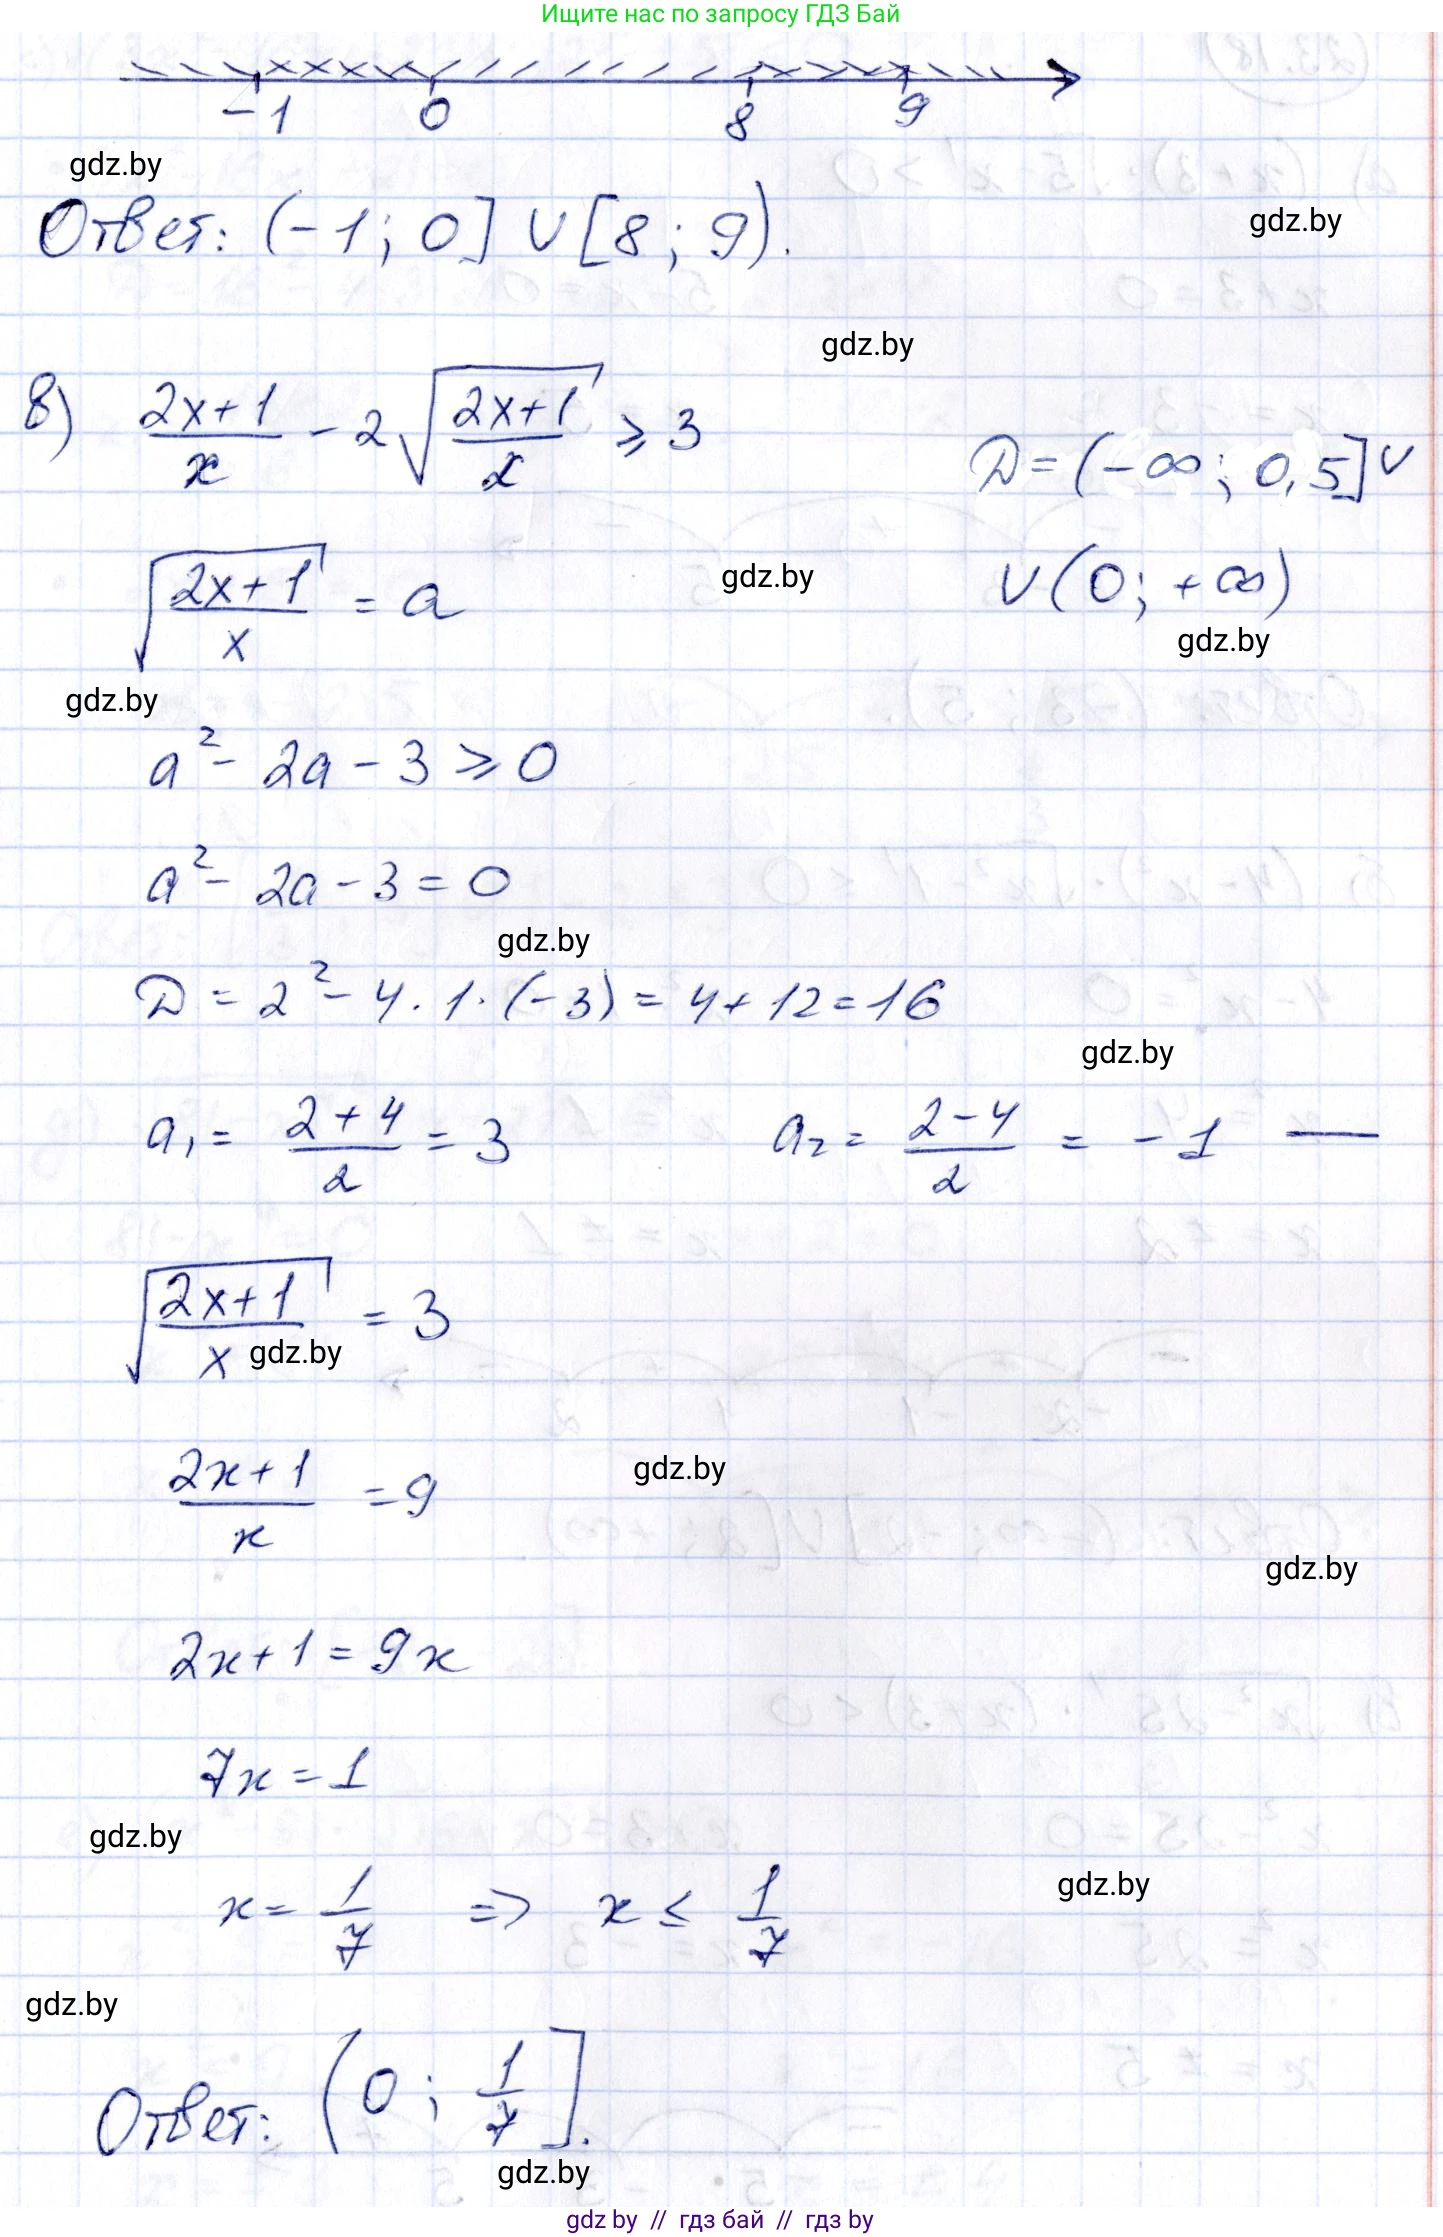 Ищите нас по запросу ГДЗ Бай
-1 0 8 9
gdz.by
Ответ: (-1; 0] ∪ [8; 9).
gdz.by
gdz.by
8) (2x+1)/x - 2√((2x+1)/x) ⩾ 3
D = (-∞; 0,5] ∪
∪ (0; +∞)
√((2x+1)/x) = a
gdz.by
gdz.by
gdz.by
a² - 2a - 3 ⩾ 0
a² - 2a - 3 = 0
gdz.by
D = 2² - 4·1·(-3) = 4+12=16
gdz.by
a₁ = (2+4)/2 = 3 a₂ = (2-4)/2 = -1 —
√((2x+1)/x) = 3
gdz.by
(2x+1)/x = 9
gdz.by
gdz.by
2x+1 = 9x
7x = 1
gdz.by
gdz.by
x = 1/7 => x ≤ 1/7
gdz.by
Ответ: (0; 1/7].
gdz.by
gdz by // гдз бай // гдз by